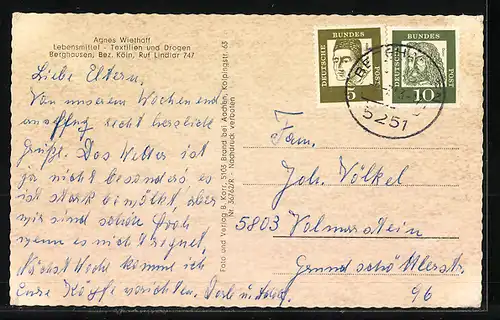 Agnes Wiethoff
Lebensmittel - Textilien und Drogen
Berghausen, Bez. Köln, Ruf Lindlar 747
Liebe Eltern.
Von unserem Wochenend
ausflug recht herzliche
Grüße. Das Wetter ist
ja nicht besonders es
ist stark bewölkt, aber
wir sind schon froh
wenn es nicht regnet,
Nächst Woche komme ich
Eure Köpfe verrichten.
Foto und Verlag B. Korr, 5105 Brand bei Aachen, Kolpingstr. 63
Nr. 36762/R - Nachdruck verboten
DEUTSCHE BUNDES POST
5
DEUTSCHE BUNDES POST
10
5251
Fam.
Joh. Völkel
5803 Volmarstein
Grundschötteler str.
96